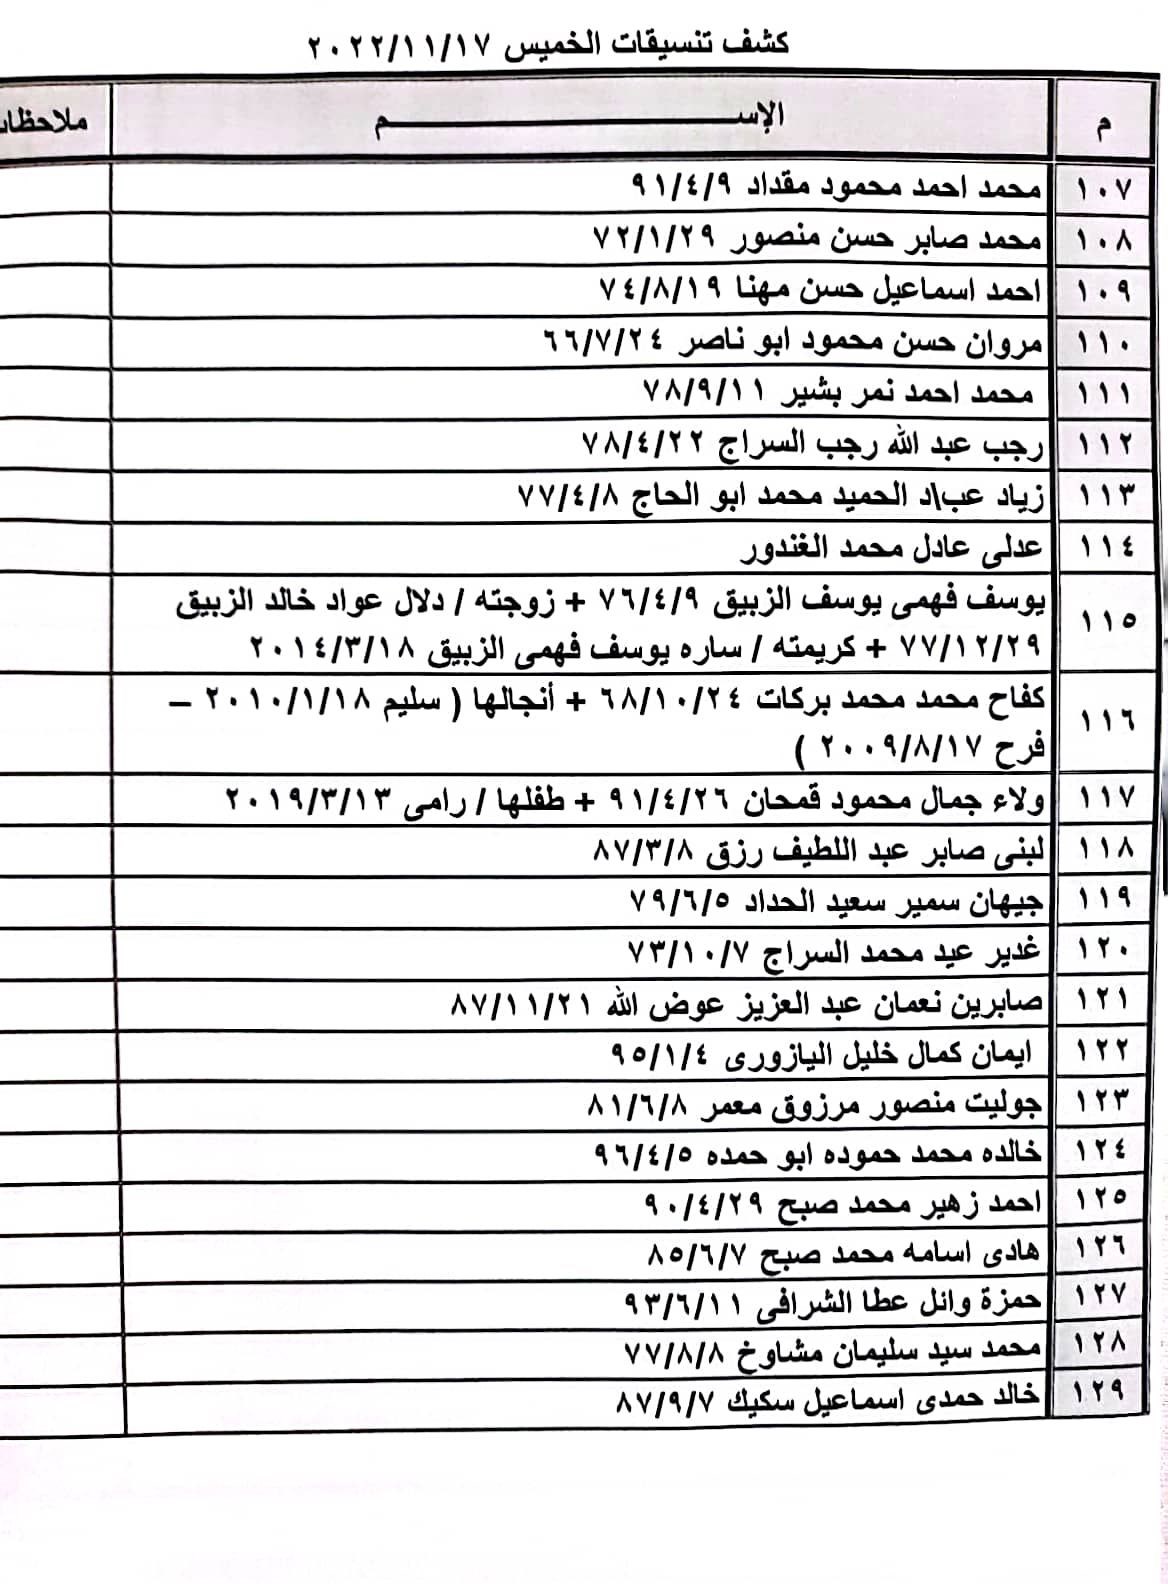 كشف تنسيقات الخميس ٢٠٢٢/١١/١٧
م الإســـــــــــــــــــــم
١٠٧ محمد احمد محمود مقداد ٩١/٤/٩
١٠٨ محمد صابر حسن منصور ٧٢/١/٢٩
١٠٩ احمد اسماعيل حسن مهنا ٧٤/٨/١٩
١١٠ مروان حسن محمود ابو ناصر ٦٦/٧/٢٤
١١١ محمد احمد نمر بشير ٧٨/٩/١١
١١٢ رجب عبد الله رجب السراج ٧٨/٤/٢٢
١١٣ زياد عب\د الحميد محمد ابو الحاج ٧٧/٤/٨
١١٤ عدلى عادل محمد الغندور
١١٥ يوسف فهمى يوسف الزبيق ٧٦/٤/٩ + زوجته / دلال عواد خالد الزبيق
٧٧/١٢/٢٩ + كريمته / ساره يوسف فهمى الزبيق ٢٠١٤/٣/١٨
١١٦ كفاح محمد محمد بركات ٦٨/١٠/٢٤ + أنجالها ( سليم ٢٠١٠/١/١٨ –
فرح ٢٠٠٩/٨/١٧ )
١١٧ ولاء جمال محمود قمحان ٩١/٤/٢٦ + طفلها / رامى ٢٠١٩/٣/١٣
١١٨ لبنى صابر عبد اللطيف رزق ٨٧/٣/٨
١١٩ جيهان سمير سعيد الحداد ٧٩/٦/٥
١٢٠ غدير عيد محمد السراج ٧٣/١٠/٧
١٢١ صابرين نعمان عبد العزيز عوض الله ٨٧/١١/٢١
١٢٢ ايمان كمال خليل اليازورى ٩٥/١/٤
١٢٣ جوليت منصور مرزوق معمر ٨١/٦/٨
١٢٤ خالده محمد حموده ابو حمده ٩٦/٤/٥
١٢٥ احمد زهير محمد صبح ٩٠/٤/٢٩
١٢٦ هادى اسامه محمد صبح ٨٥/٦/٧
١٢٧ حمزة وائل عطا الشرافى ٩٣/٦/١١
١٢٨ محمد سيد سليمان مشاوخ ٧٧/٨/٨
١٢٩ خالد حمدى اسماعيل سكيك ٨٧/٩/٧